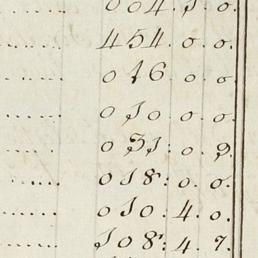 004. J. 0.
........ 454. 0. 0.
........ 016. 0. 0.
........ 0J0. 0. 0.
........ 03J. 0. 9.
........ 0J8. 0. 0.
........ 0J0. 4. 0.
........ J08. 4. 7.